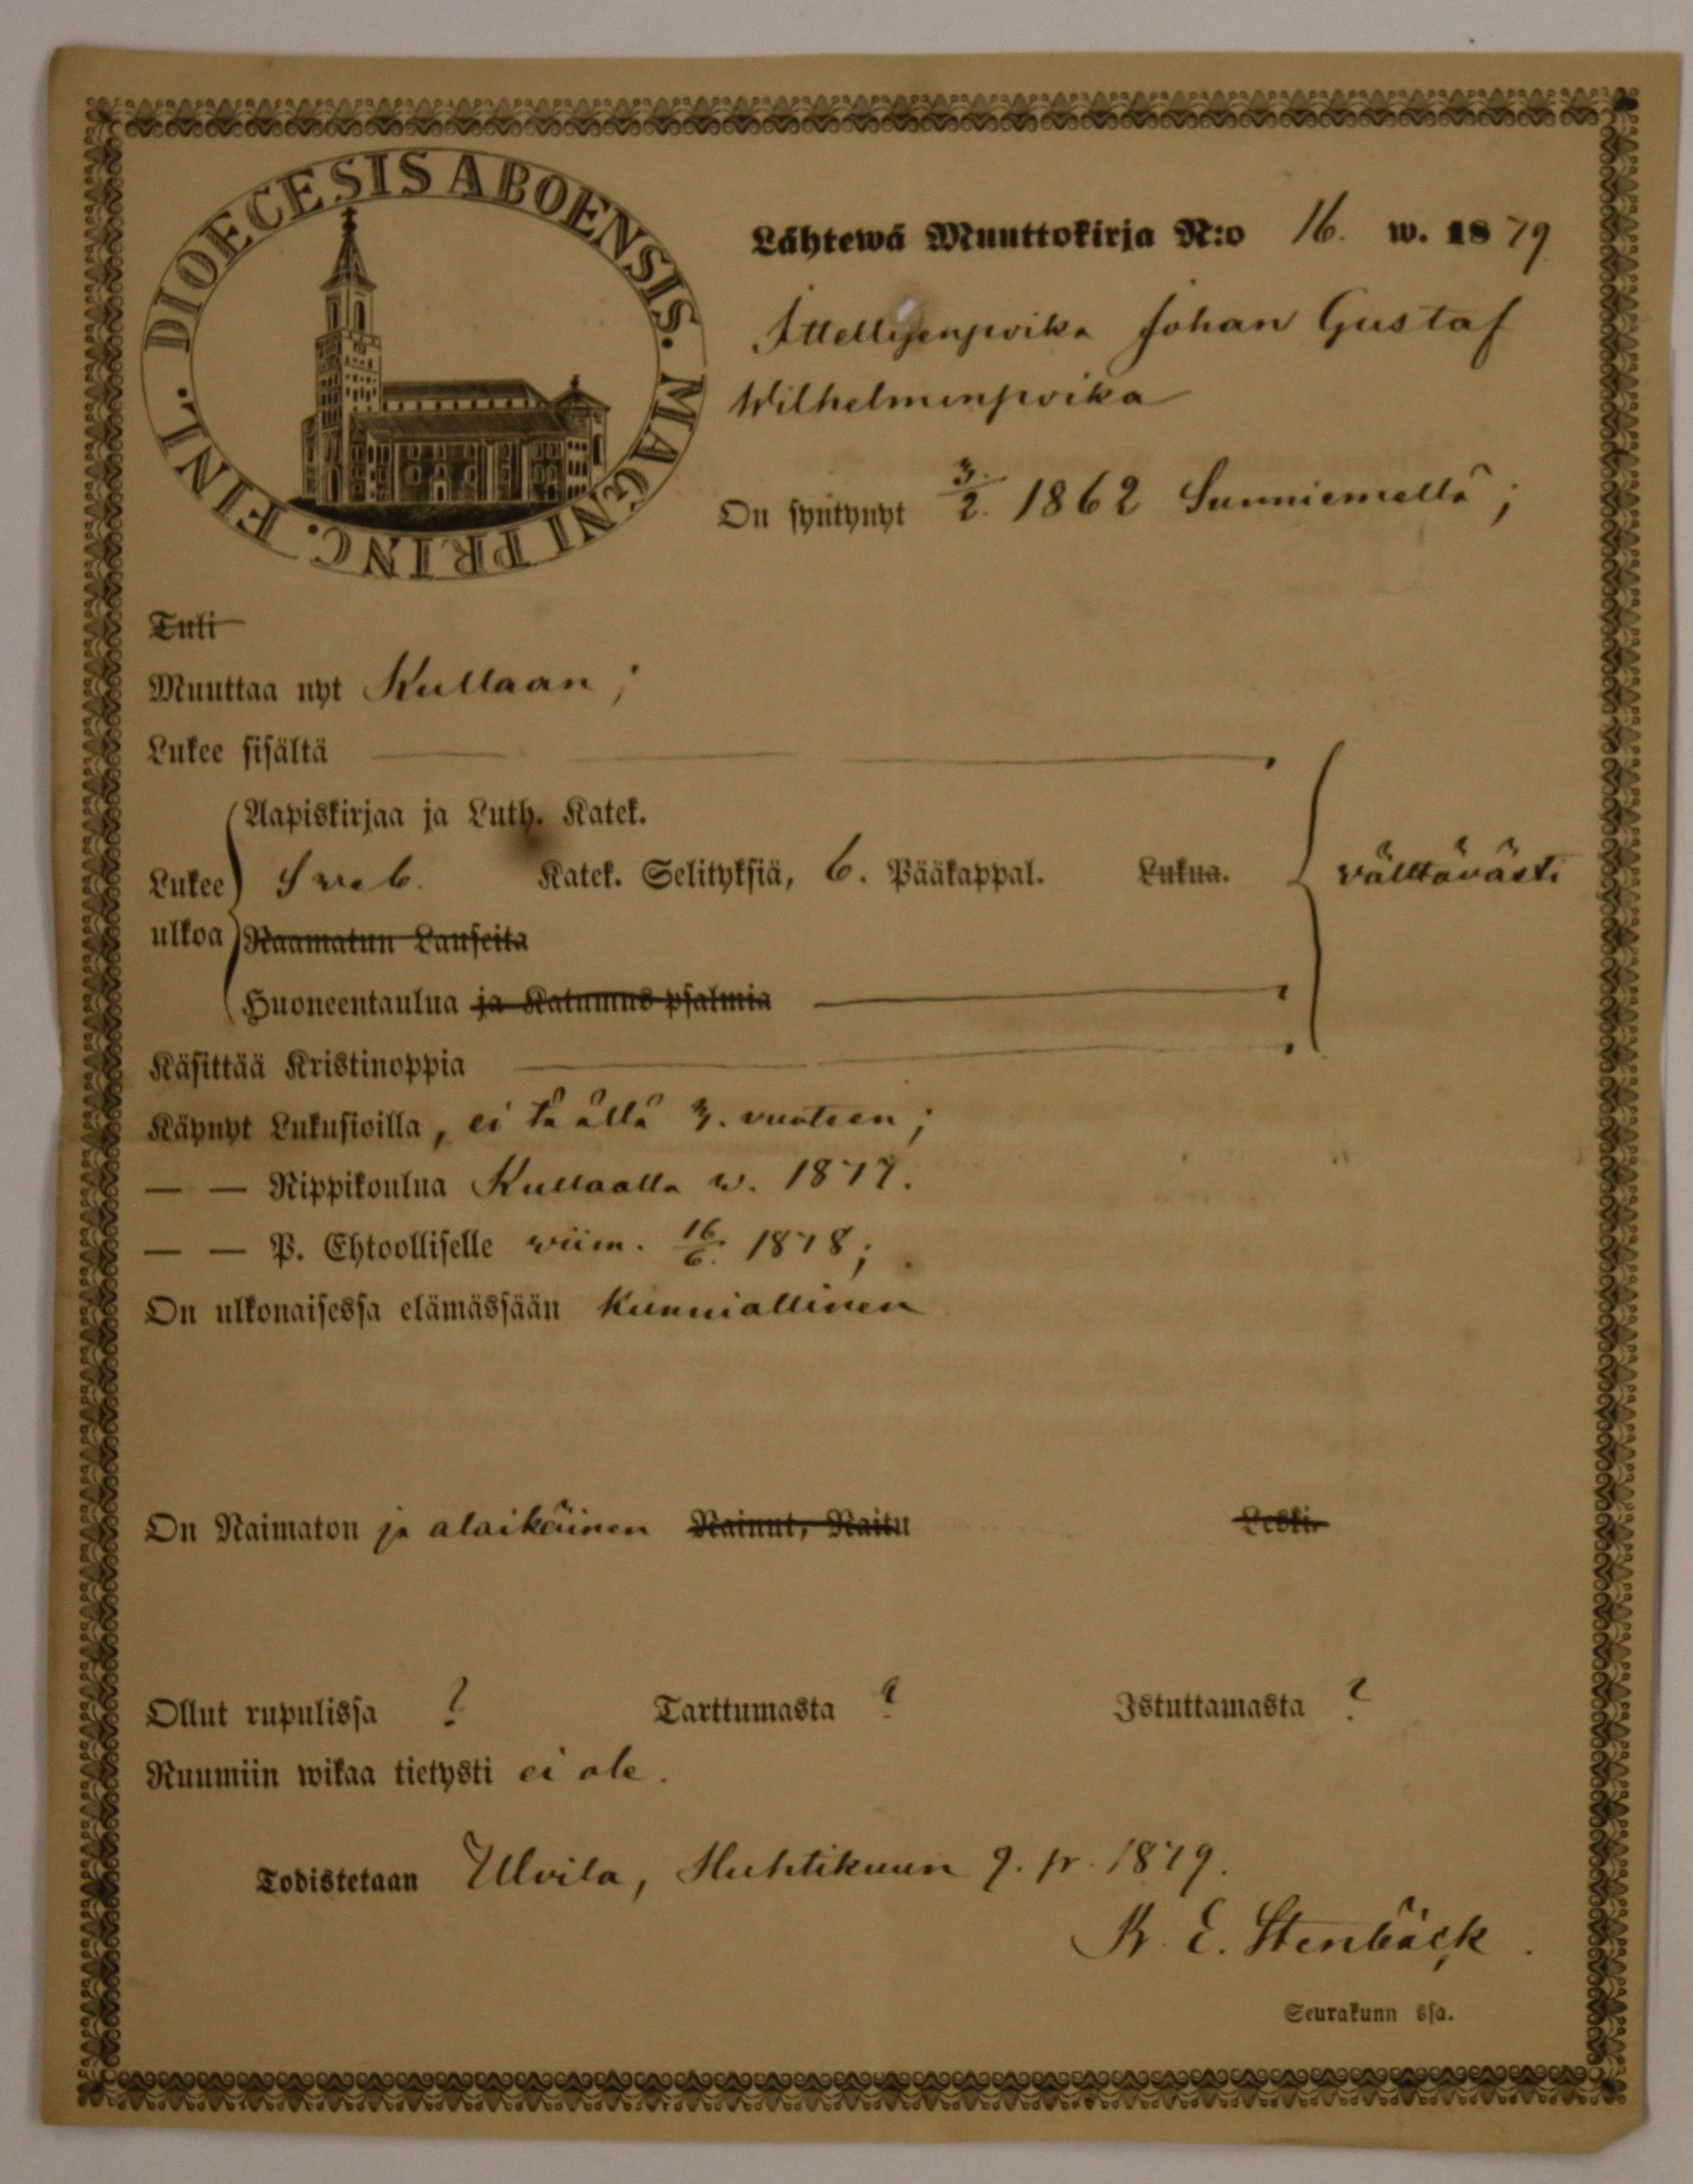 DIOECESIS ABOENSIS. MAGNI PRINC. FINL.
Lähtewä Muuttokirja N:o 16. w. 1879
Ittellisenpoika Johan Gustaf
Wilhelminpoika
On syntynyt 3/2. 1862 Sunniemellä;
Tuli
Muuttaa nyt Kullaan;
Lukee sisältä
Aapiskirjaa ja Luth. Katek.
Lukee Sveb. Katek. Selityksiä, 6. Pääkappal. Lukua. välttävästi
ulkoa Raamatun Lauseita
Huoneentaulua ja Katumus-psalmia
Käsittää Kristinoppia
Käynyt Lukusioilla, ei täällä 3. vuoteen;
— — Rippikoulua Kullaalla w. 1877.
— — P. Ehtoolliselle viim. 16/6. 1878;
On ulkonaisessa elämässään kunniallinen
On Naimaton ja alaikäinen Nainut, Naitu Leski.
Ollut rupulissa ? Tarttumasta ? Istuttamasta ?
Ruumiin wikaa tietysti ei ole.
Todistetaan Ulvila, Huhtikuun 9. p. 1879.
K. E. Stenbäck.
Seurakunn ssa.